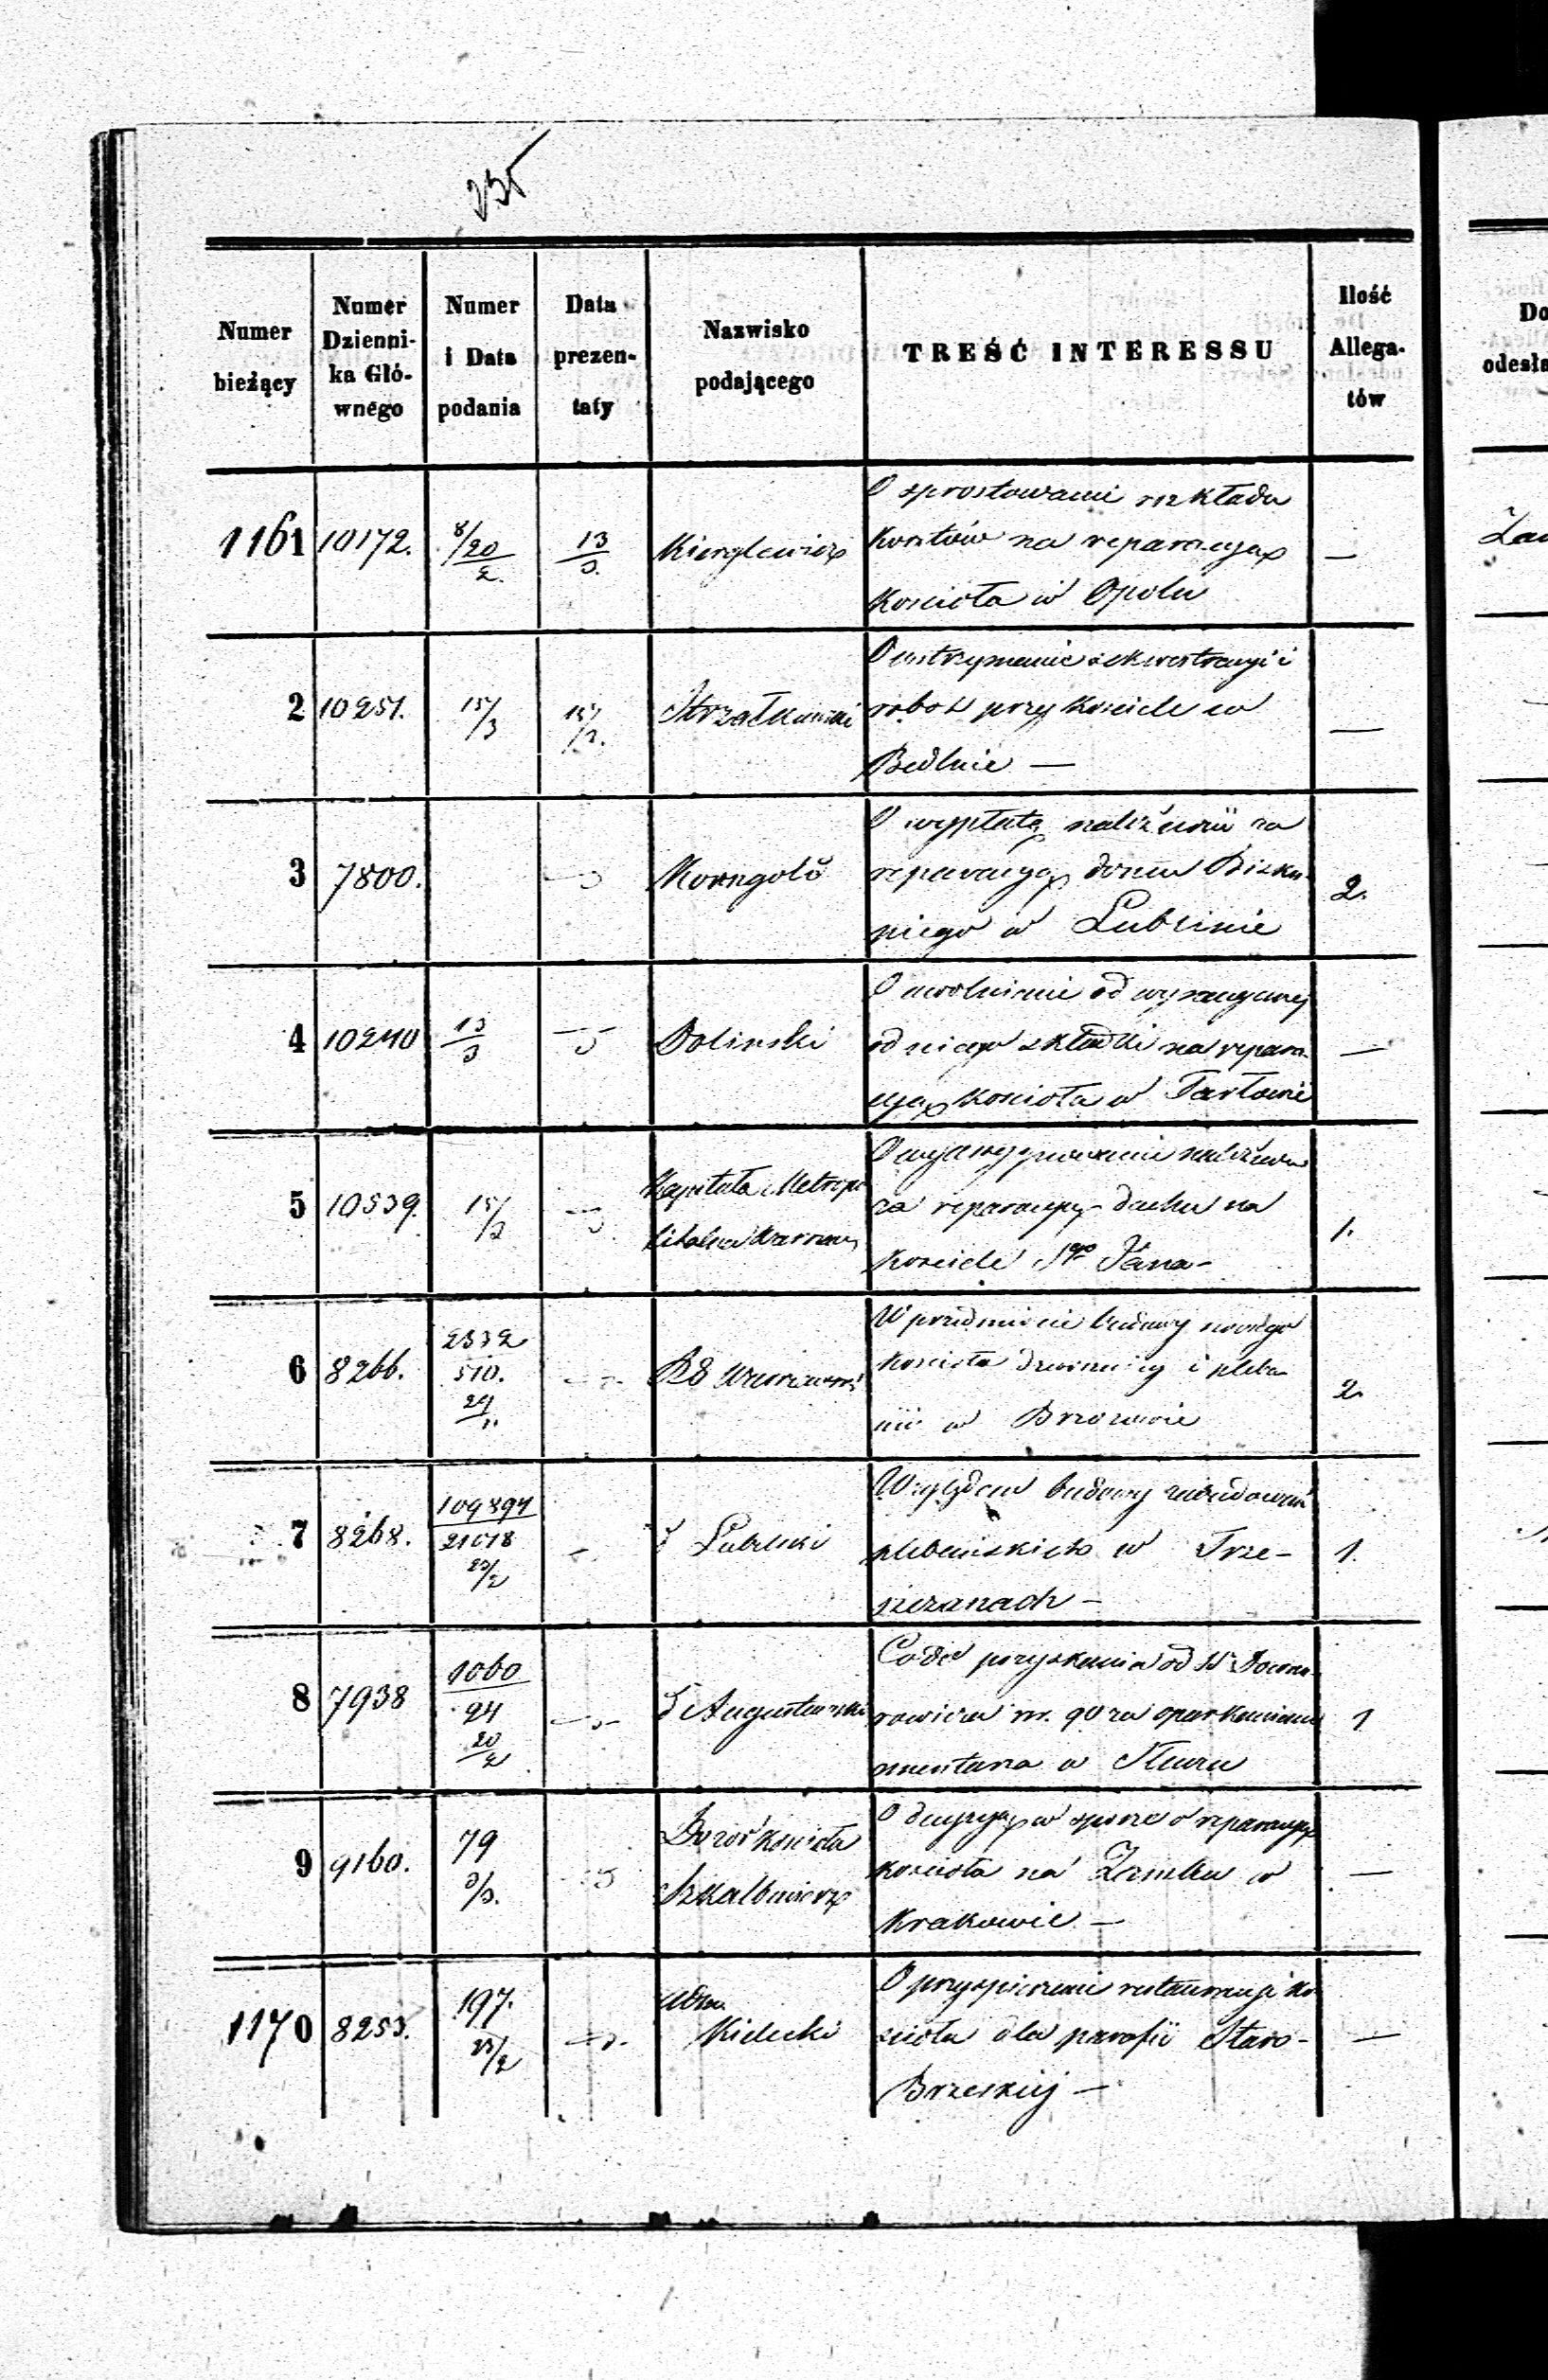 235
Numer bieżący | Numer Dzienni-ka Głó-wnego | Numer i Data podania | Data prezen-taty | Nazwisko podającego | TREŚĆ INTERESSU | Ilość Allega-tów
Do
odesła
1161 | 10172. | 8/20 2. | 13/3. | Kierglewicz | O sprostowanie rozkładu
kosztów na reparacyą
kościoła w Opolu | —
2 | 10251. | 15/3 | 15/3. | Strzałkowski | O wstrzymanie sekwestracyi i
robót przy kościele w
Bedlnie — | —
3 | 7800. | Korngold | O wypłatę należności za
reparacyą domu Bisku-
piego w Lublinie | 2.
4 | 10240 | 13/3 | Doliński | O uwolnienie od wymaganej
od niego składki na repara-
cyą kościoła w Tarłowie | —
5 | 10539. | 15/3 | Kapituła Metropo
litalna Warszaws | O wyassygnowanie należności
za reparacyę dachu na
kościele Sgo Jana - | 1.
6 | 8266. | 2332 / 510. | RG Warszawski | W przedmiocie budowy nowego
kościoła dzwonnicy i pleba-
nii w Brzozowie | 2.
7 | 8268. | 109894 / 21618 23/2 | Lubelski | Względem budowy zabudowań
plebańskich w Trze-
szczanach - | 1.
8 | 7938 | 1060 / 24 20/2 | Augustowski | Co do pozyskania od
rowicza rs. 90 za oparkanienie
cmentarza w | 1
9 | 9160. | 79 3/3. | Dozór kościoła
Szkalbmierz | O decyzyą w sporze o reparacyą
kościoła na Zamku w
Krakowie — | —
1170 | 8253. | 197. 23/2 | Adm.
Kielecki | O przyspieszenie restauracyi ko
ścioła dla parafii Staro-
Brzeskiej — | —